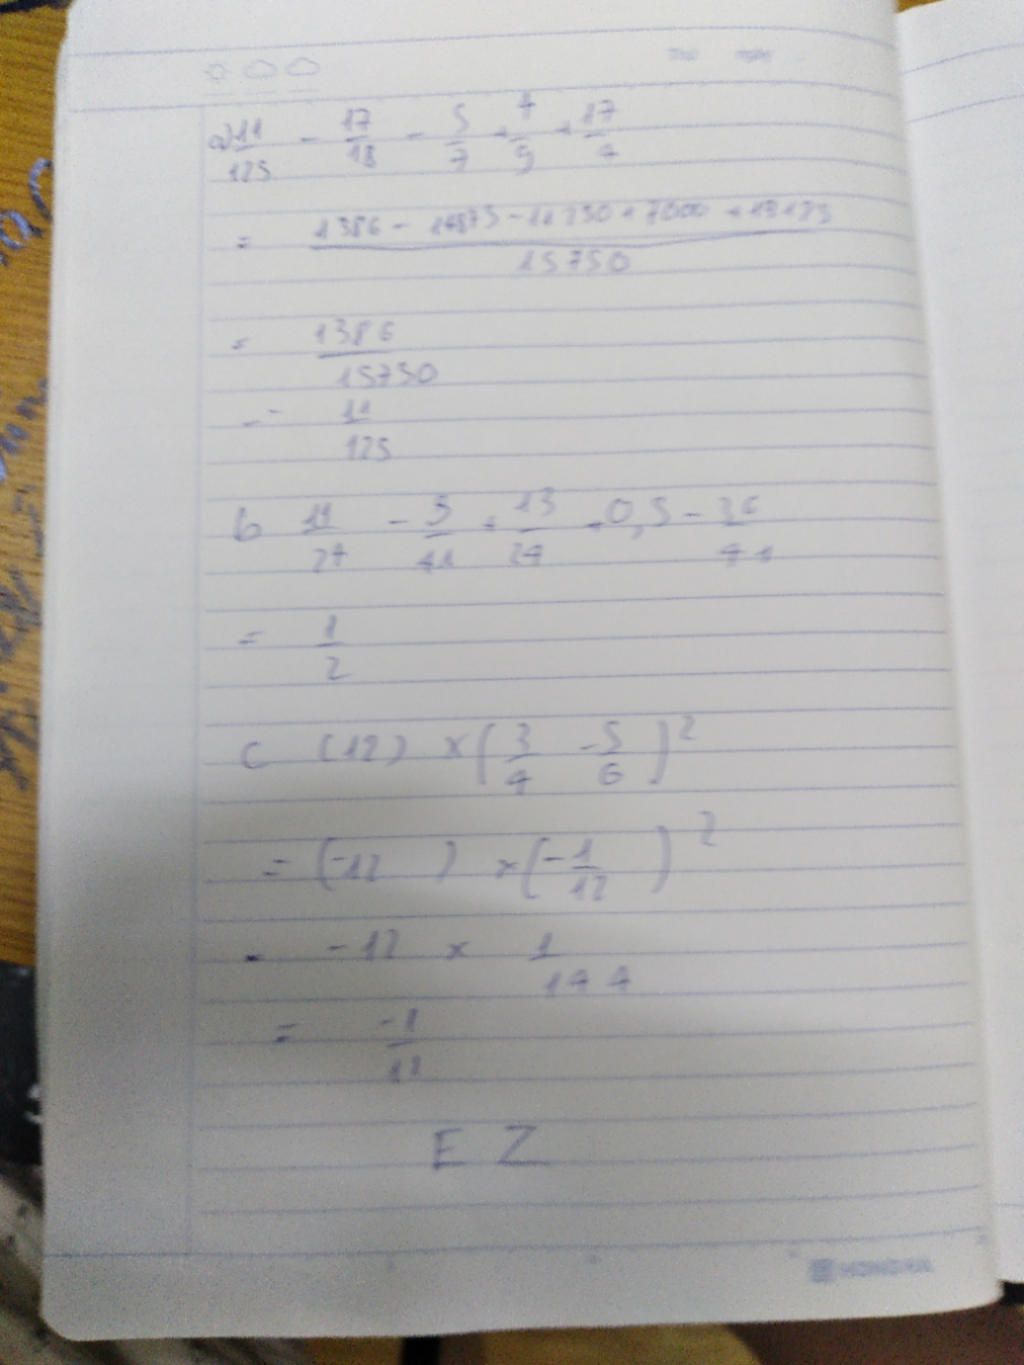 a) 11/125 - 17/18 - 5/7 + 4/9 + 17/
= (1386 - 14875 - 11250 + 7000 + 19125)/15750
= 1386/15750
= 11/125
b 11/24 - 5/41 + 13/24 + 0,5 - 36/41
= 1/2
c (12) × (3/4 - 5/6)²
= (-12 ) × (-1/12)²
= -12 × 1/144
= -1/12
E Z